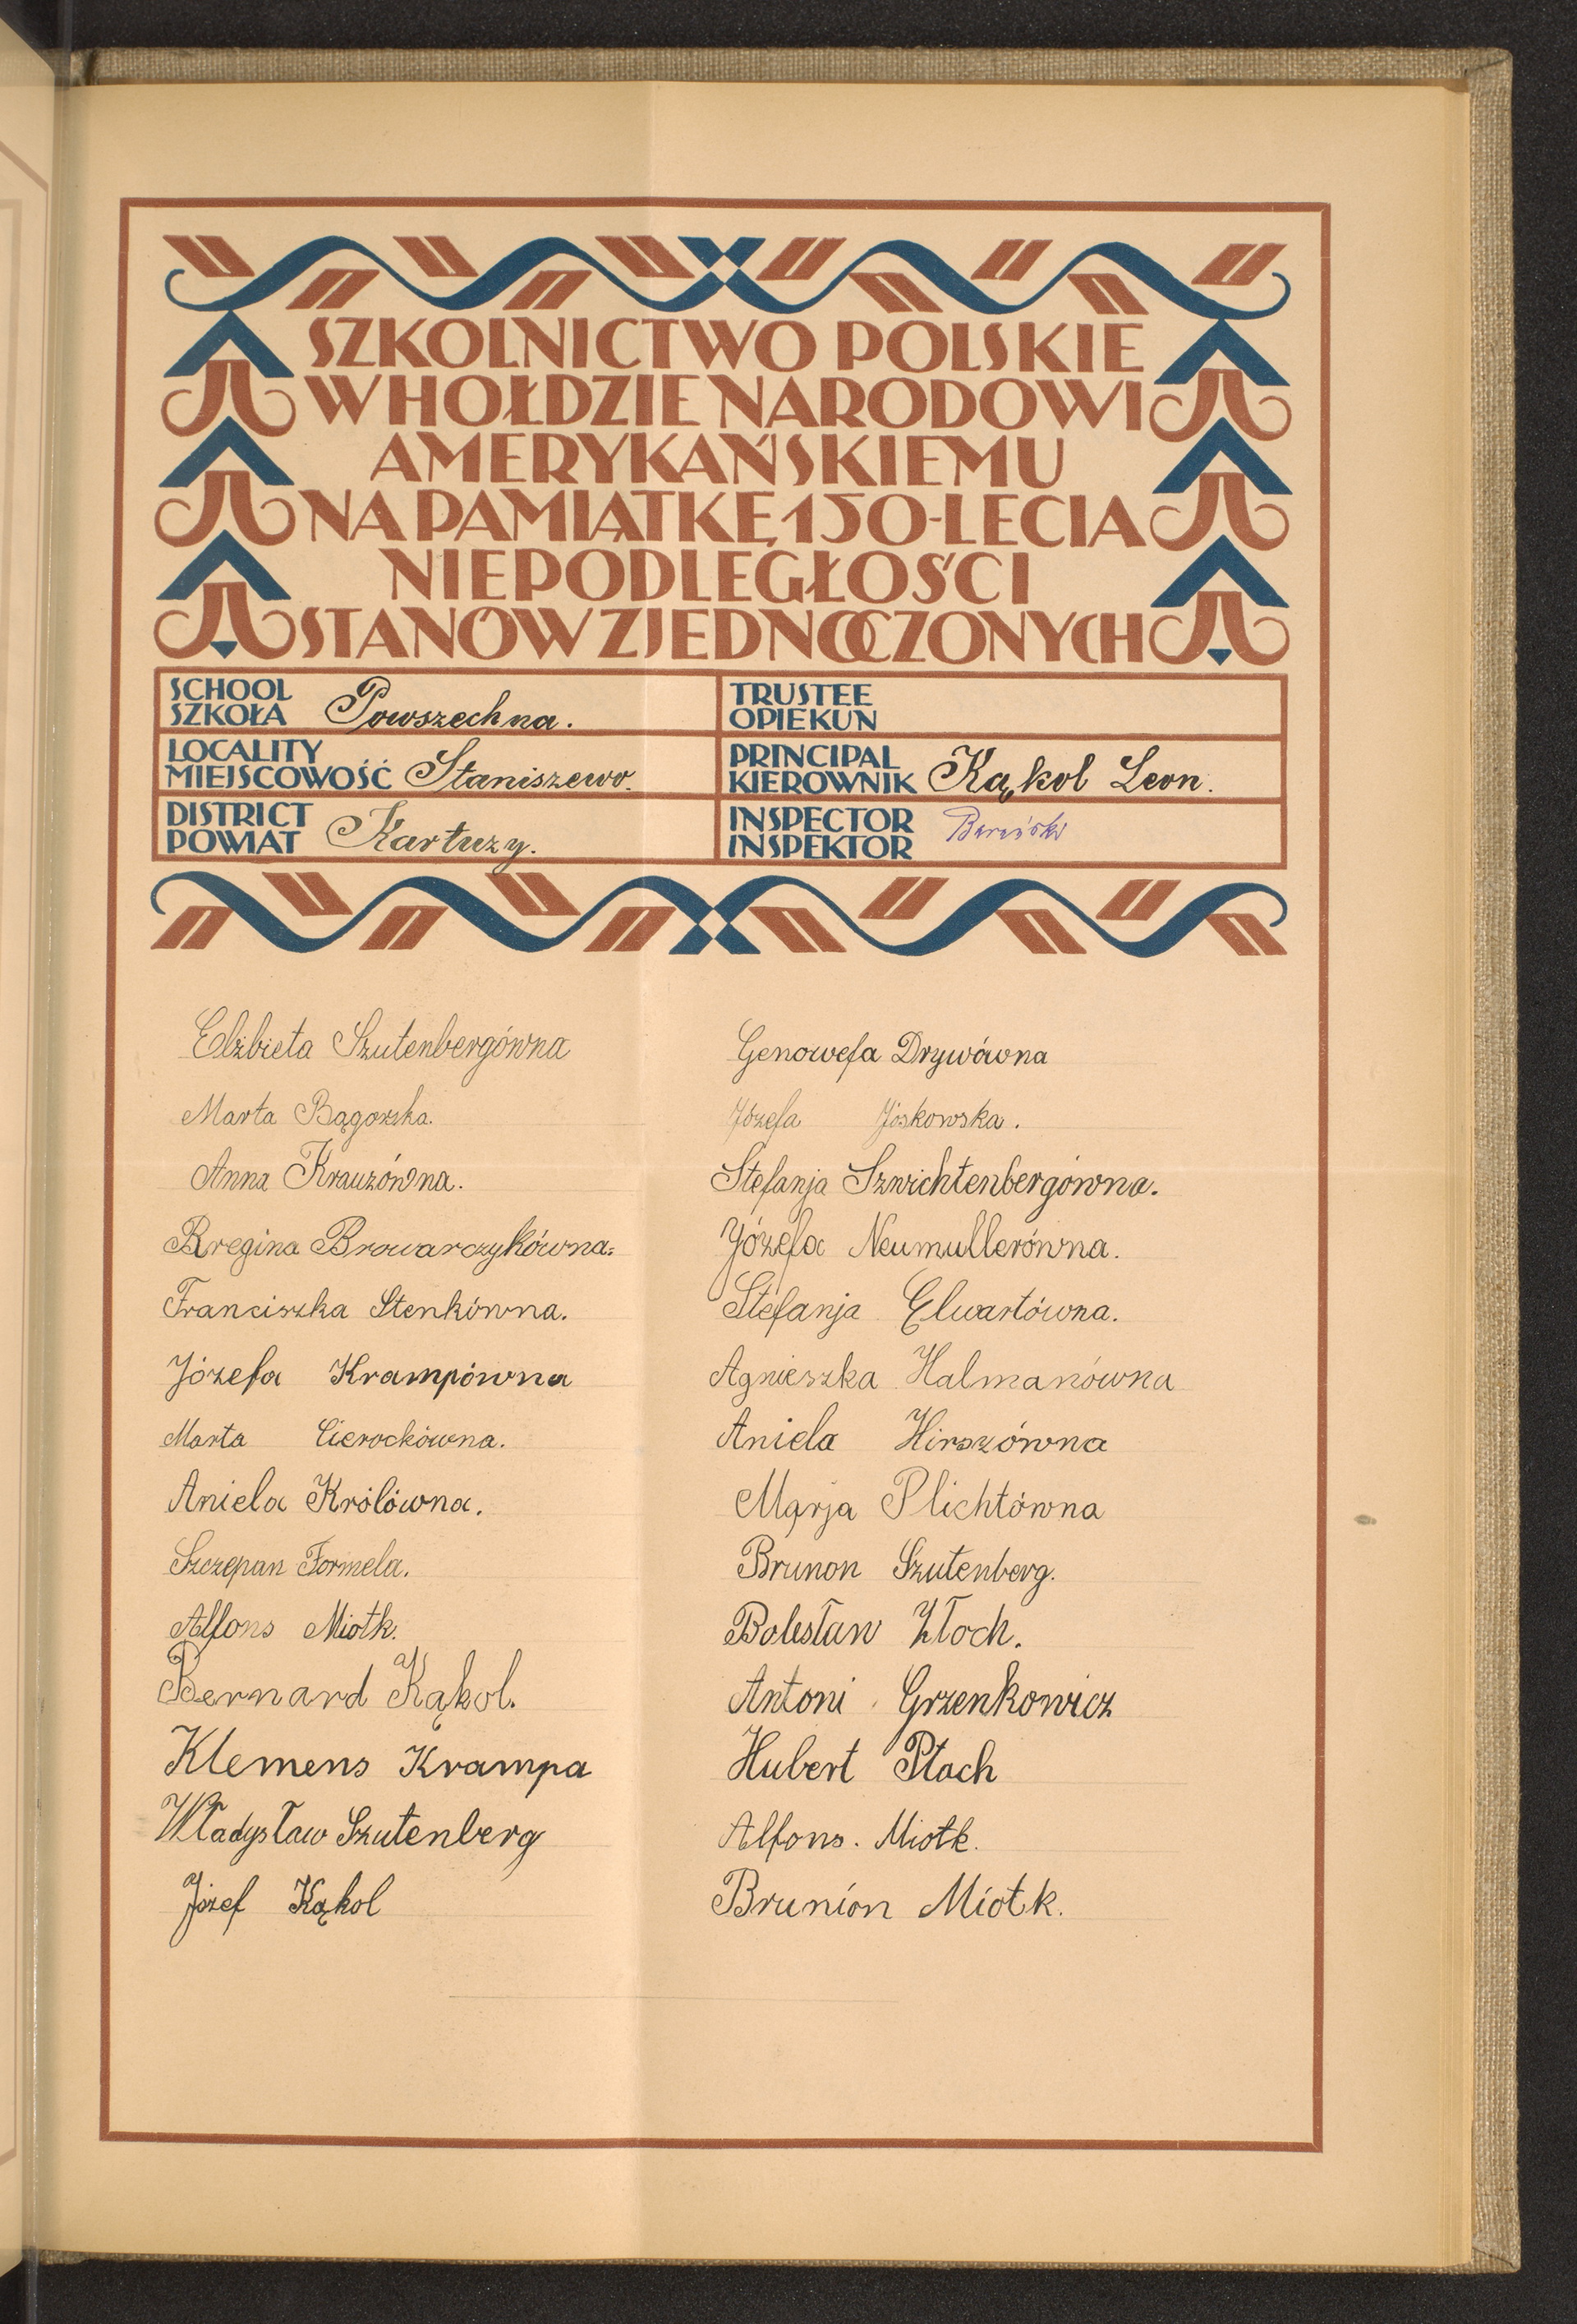 SZKOLNICTWO POLSKIE
W HOŁDZIE NARODOWI
AMERYKAŃSKIEMU
NA PAMIĄTKĘ 150-LECIA
NIEPODLEGŁOŚCI
STANÓW ZJEDNOCZONYCH
SCHOOL
SZKOŁA Powszechna.
LOCALITY
MIEJSCOWOŚĆ Staniszewo.
DISTRICT
POWIAT Kartuzy.
TRUSTEE
OPIEKUN
PRINCIPAL
KIEROWNIK Kąkol Leon.
INSPECTOR
INSPEKTOR
Elżbieta Szutenbergówna
Marta Bągorska.
Anna Krauzówna.
Rregina Browarczykówna.
Franciszka Stenkówna.
Józefa Krampówna
Marta Cierockówna.
Aniela Królówna.
Szczepan Formela.
Alfons Miotk.
Bernard Kąkol.
Klemens Krampa
Władysław Szutenberg
Józef Kąkol
Genowefa Drywówna
Józefa Joskowska.
Stefanja Szwichtenbergówna.
Józefa Neumullerówna.
Stefanja Elwartówna.
Agnieszka Halmanówna
Aniela Hirszówna
Marja Plichtówna
Brunon Szutenberg.
Bolesław Złoch.
Antoni Grzenkowicz
Hubert Ptach
Alfons. Miotk.
Brunion Miotk.